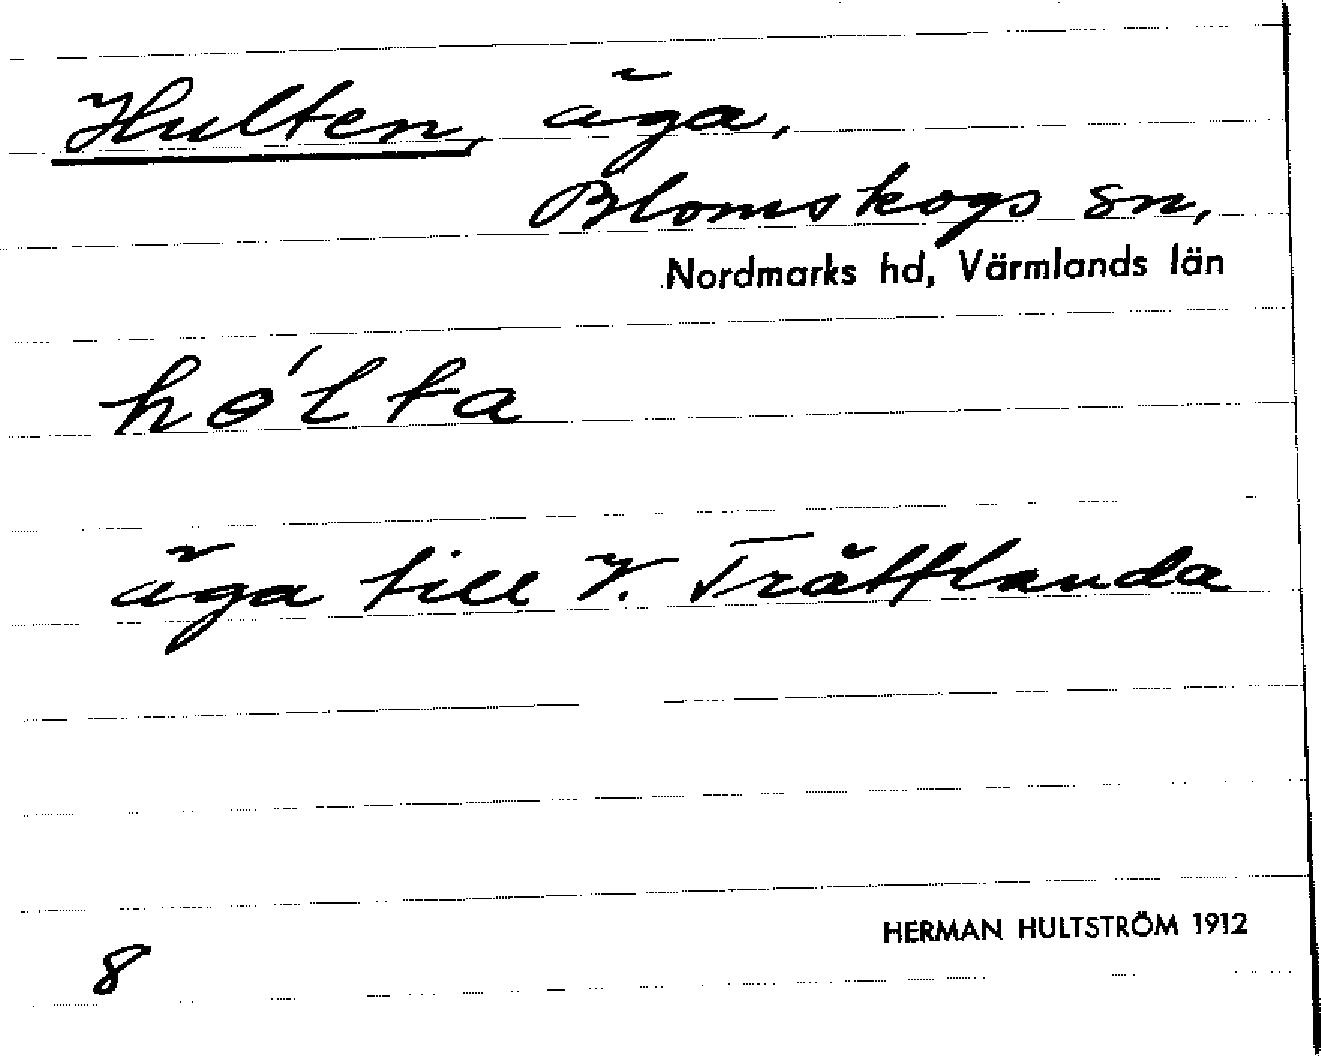 Hulten, äga,
Blomskogs sn,
Nordmarks hd, Värmlands län
hɵ́lta
äga till V. Trättlanda
HERMAN HULTSTRÖM 1912
8